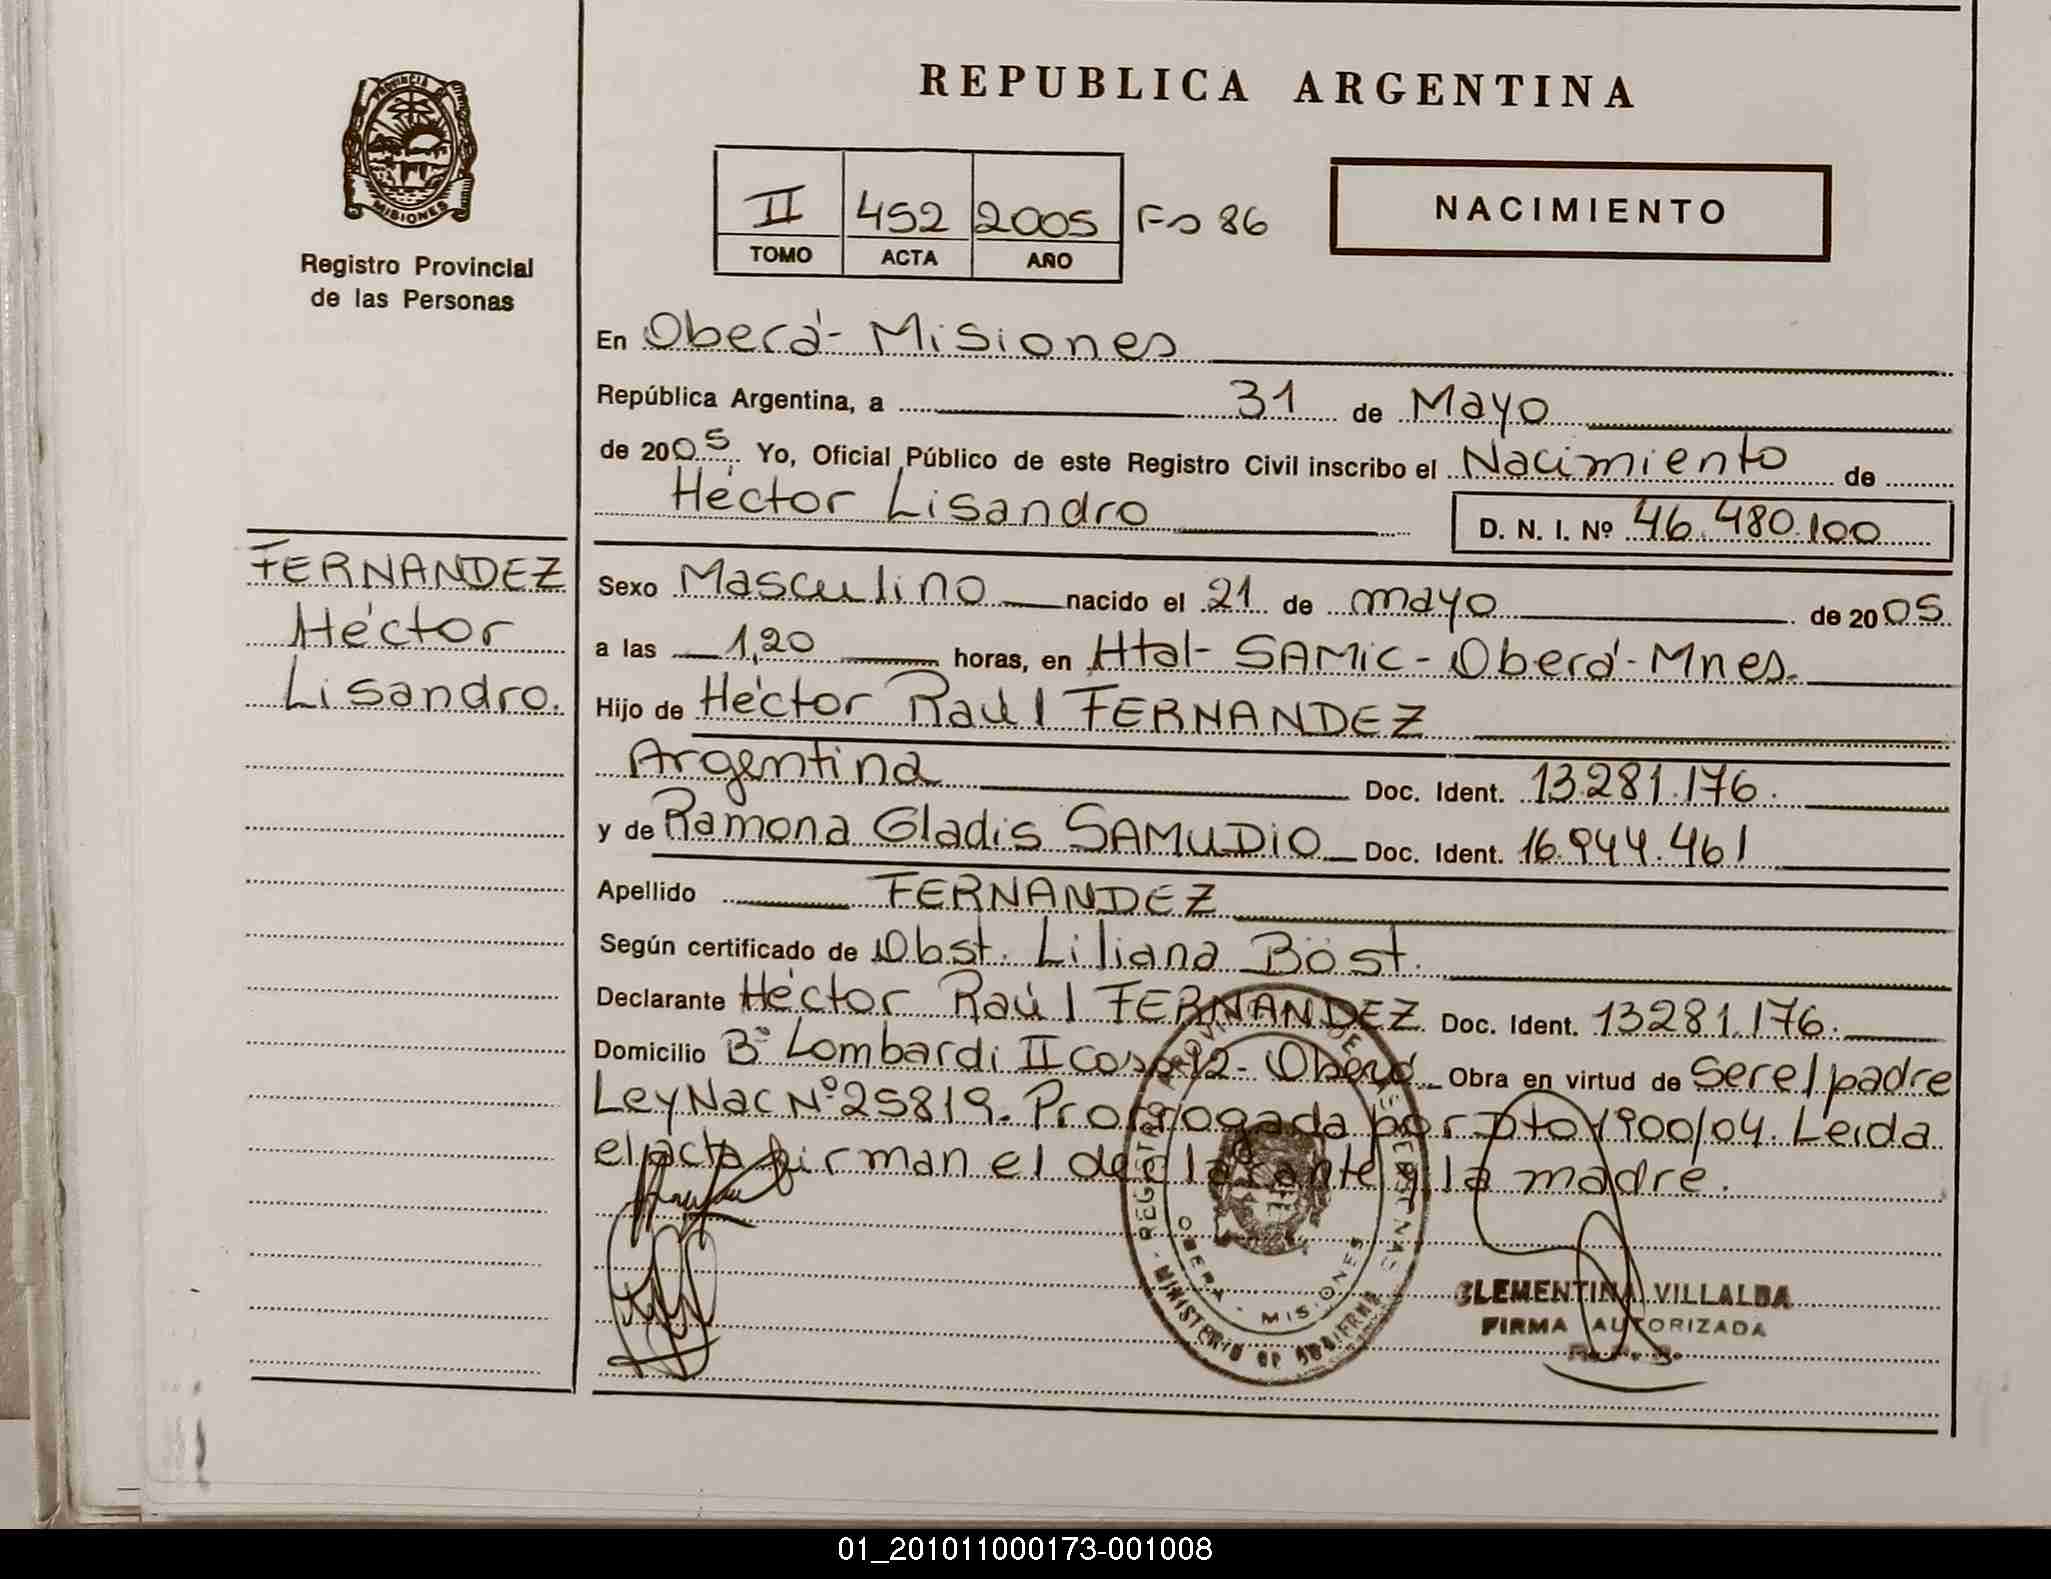 REPUBLICA ARGENTINA
PROVINCIA DE
MISIONES
Registro Provincial
de las Personas
II 452 2005 Fo 86
TOMO ACTA AÑO
NACIMIENTO
En Oberá - Misiones
República Argentina, a 31 de Mayo
de 2005. Yo, Oficial Público de este Registro Civil inscribo el Nacimiento de
Héctor Lisandro D. N. I. Nº 46.480.100
FERNANDEZ
Héctor
Lisandro.
Sexo Masculino nacido el 21 de mayo de 2005.
a las 1,20 horas, en Htal - SAMIC - Oberá - Mnes.
Hijo de Héctor Raúl FERNANDEZ
Argentina Doc. Ident. 13.281.176.
y de Ramona Gladis SAMUDIO Doc. Ident. 16.944.461
Apellido FERNANDEZ
Según certificado de Obst. Liliana Böst.
Declarante Héctor Raúl FERNANDEZ Doc. Ident. 13281.176.
Domicilio Bº Lombardi II Casa 92 - Oberá Obra en virtud de Ser el padre
Ley Nac Nº 25819. Prorrogada por Dto 1900/04. Leída
el acta firman el declarante y la madre.
MINISTERIO DE GOBIERNO
OBERA - MISIONES
CLEMENTINA VILLALBA
FIRMA AUTORIZADA
01_201011000173-001008